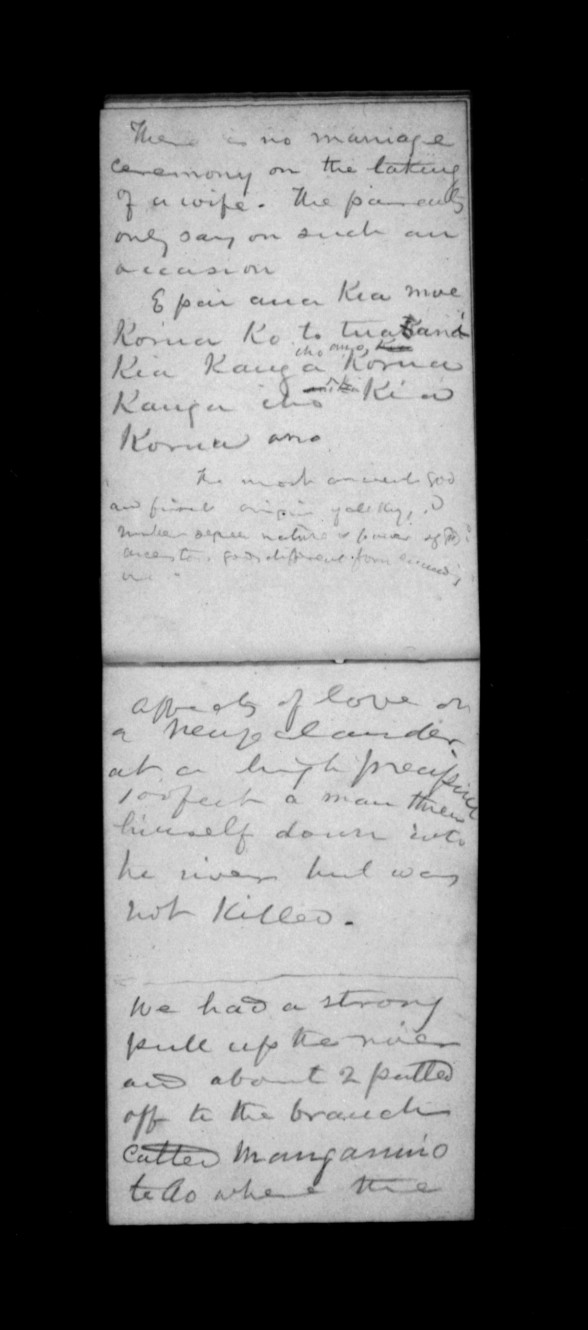 There is no marriage
ceremony on the taking
of a wife. The parents
only say on such an
occasion
E pai ana Kia moe
Korua Ko to tua
iho ano,
Kia Kanga Korua
Kanga iho Kia
Korua ano
The most ancient god
and first origin
nature & power of
gods different form
of love on
a Newzelander
at a high precipice
100 feet a man threw
himself down into
he river but was
not Killed.
We had a strong
pull up the river
and about 2 pulled
off to the branch
called
te Ao where the